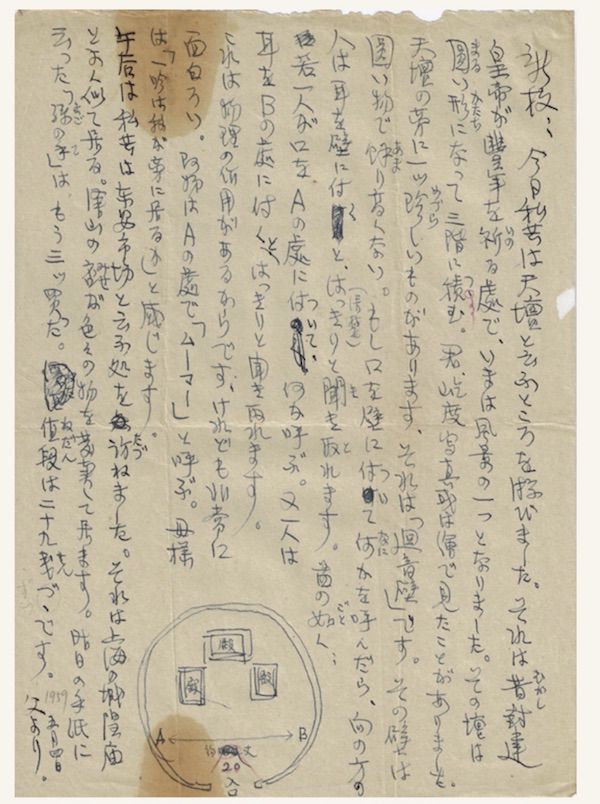 今日私共は天壇と云ふところを游びました。それは昔封建
皇帝が豊年を祈る處で、いまは風景の一つとなりました。その壇は
圓い形になって三階に積む。君、屹度写真或は画で見たことがありました。
天壇の旁に一ツ珍しいものがあります、それは「迴音壁」です。その壁は
圓い物で餘り高くない。もし口を壁につけて何かを呼んだら、向の方の
人は耳を壁に付くと、はっきりと聞き取れます。图の如く：
若一人が口をAの處について、何を呼ぶ。又一人は
耳をBの處に付くとはっきりと聞き取れます。
これは物理の作用があるからです、けれども非常に
面白ろい。阿姉はAの處で「ムーマー」と呼ぶ。母様
は「一吟は我が旁に居るか」と感じます。
午后は私共は东安市场と云ふ処を訪ねました。それは上海の城隍庙
とよく似て居る。澤山の客が色々の物を買って居ます。昨日の手紙に
云った「孫の手」は、もう三ツ買った。値段は二十九銭づつです。
1959 五月四日
父より。
殿
殿 殿
A B
約 丈
20
入口